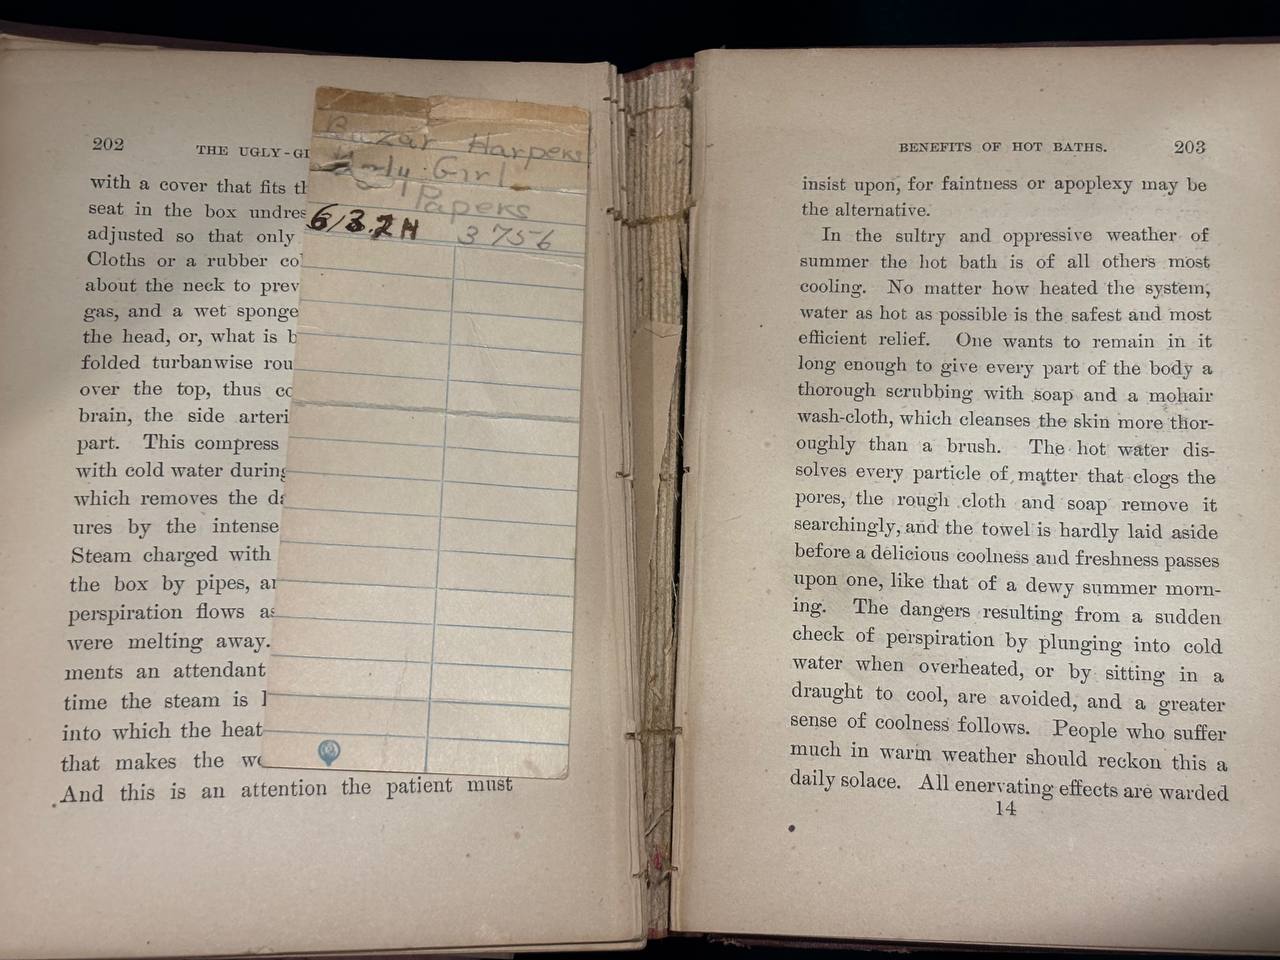 202
THE UGLY-GI
with a cover that fits th
seat in the box undres
adjusted so that only
Cloths or a rubber col
about the neck to prev
gas, and a wet sponge
the head, or, what is b
folded turbanwise rou
over the top, thus co
brain, the side arteri
part. This compress
with cold water during
which removes the da
ures by the intense
Steam charged with
the box by pipes, an
perspiration flows as
were melting away.
ments an attendant
time the steam is l
into which the heat
that makes the we
And this is an attention the patient must
Bazar Harpers
Ugly Girl
Papers
613.2H 3756
BENEFITS OF HOT BATHS. 203
insist upon, for faintness or apoplexy may be
the alternative.
In the sultry and oppressive weather of
summer the hot bath is of all others most
cooling. No matter how heated the system,
water as hot as possible is the safest and most
efficient relief. One wants to remain in it
long enough to give every part of the body a
thorough scrubbing with soap and a mohair
wash-cloth, which cleanses the skin more thor-
oughly than a brush. The hot water dis-
solves every particle of matter that clogs the
pores, the rough cloth and soap remove it
searchingly, and the towel is hardly laid aside
before a delicious coolness and freshness passes
upon one, like that of a dewy summer morn-
ing. The dangers resulting from a sudden
check of perspiration by plunging into cold
water when overheated, or by sitting in a
draught to cool, are avoided, and a greater
sense of coolness follows. People who suffer
much in warm weather should reckon this a
daily solace. All enervating effects are warded
14